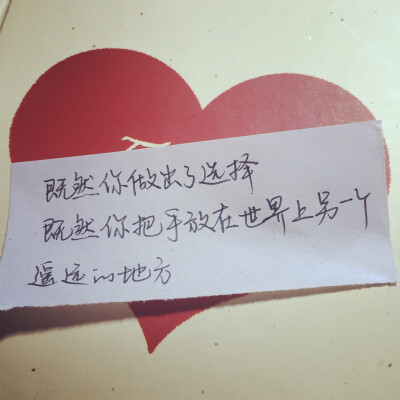 既然你做出了选择
既然你把手放在世界上另一个
遥远的地方